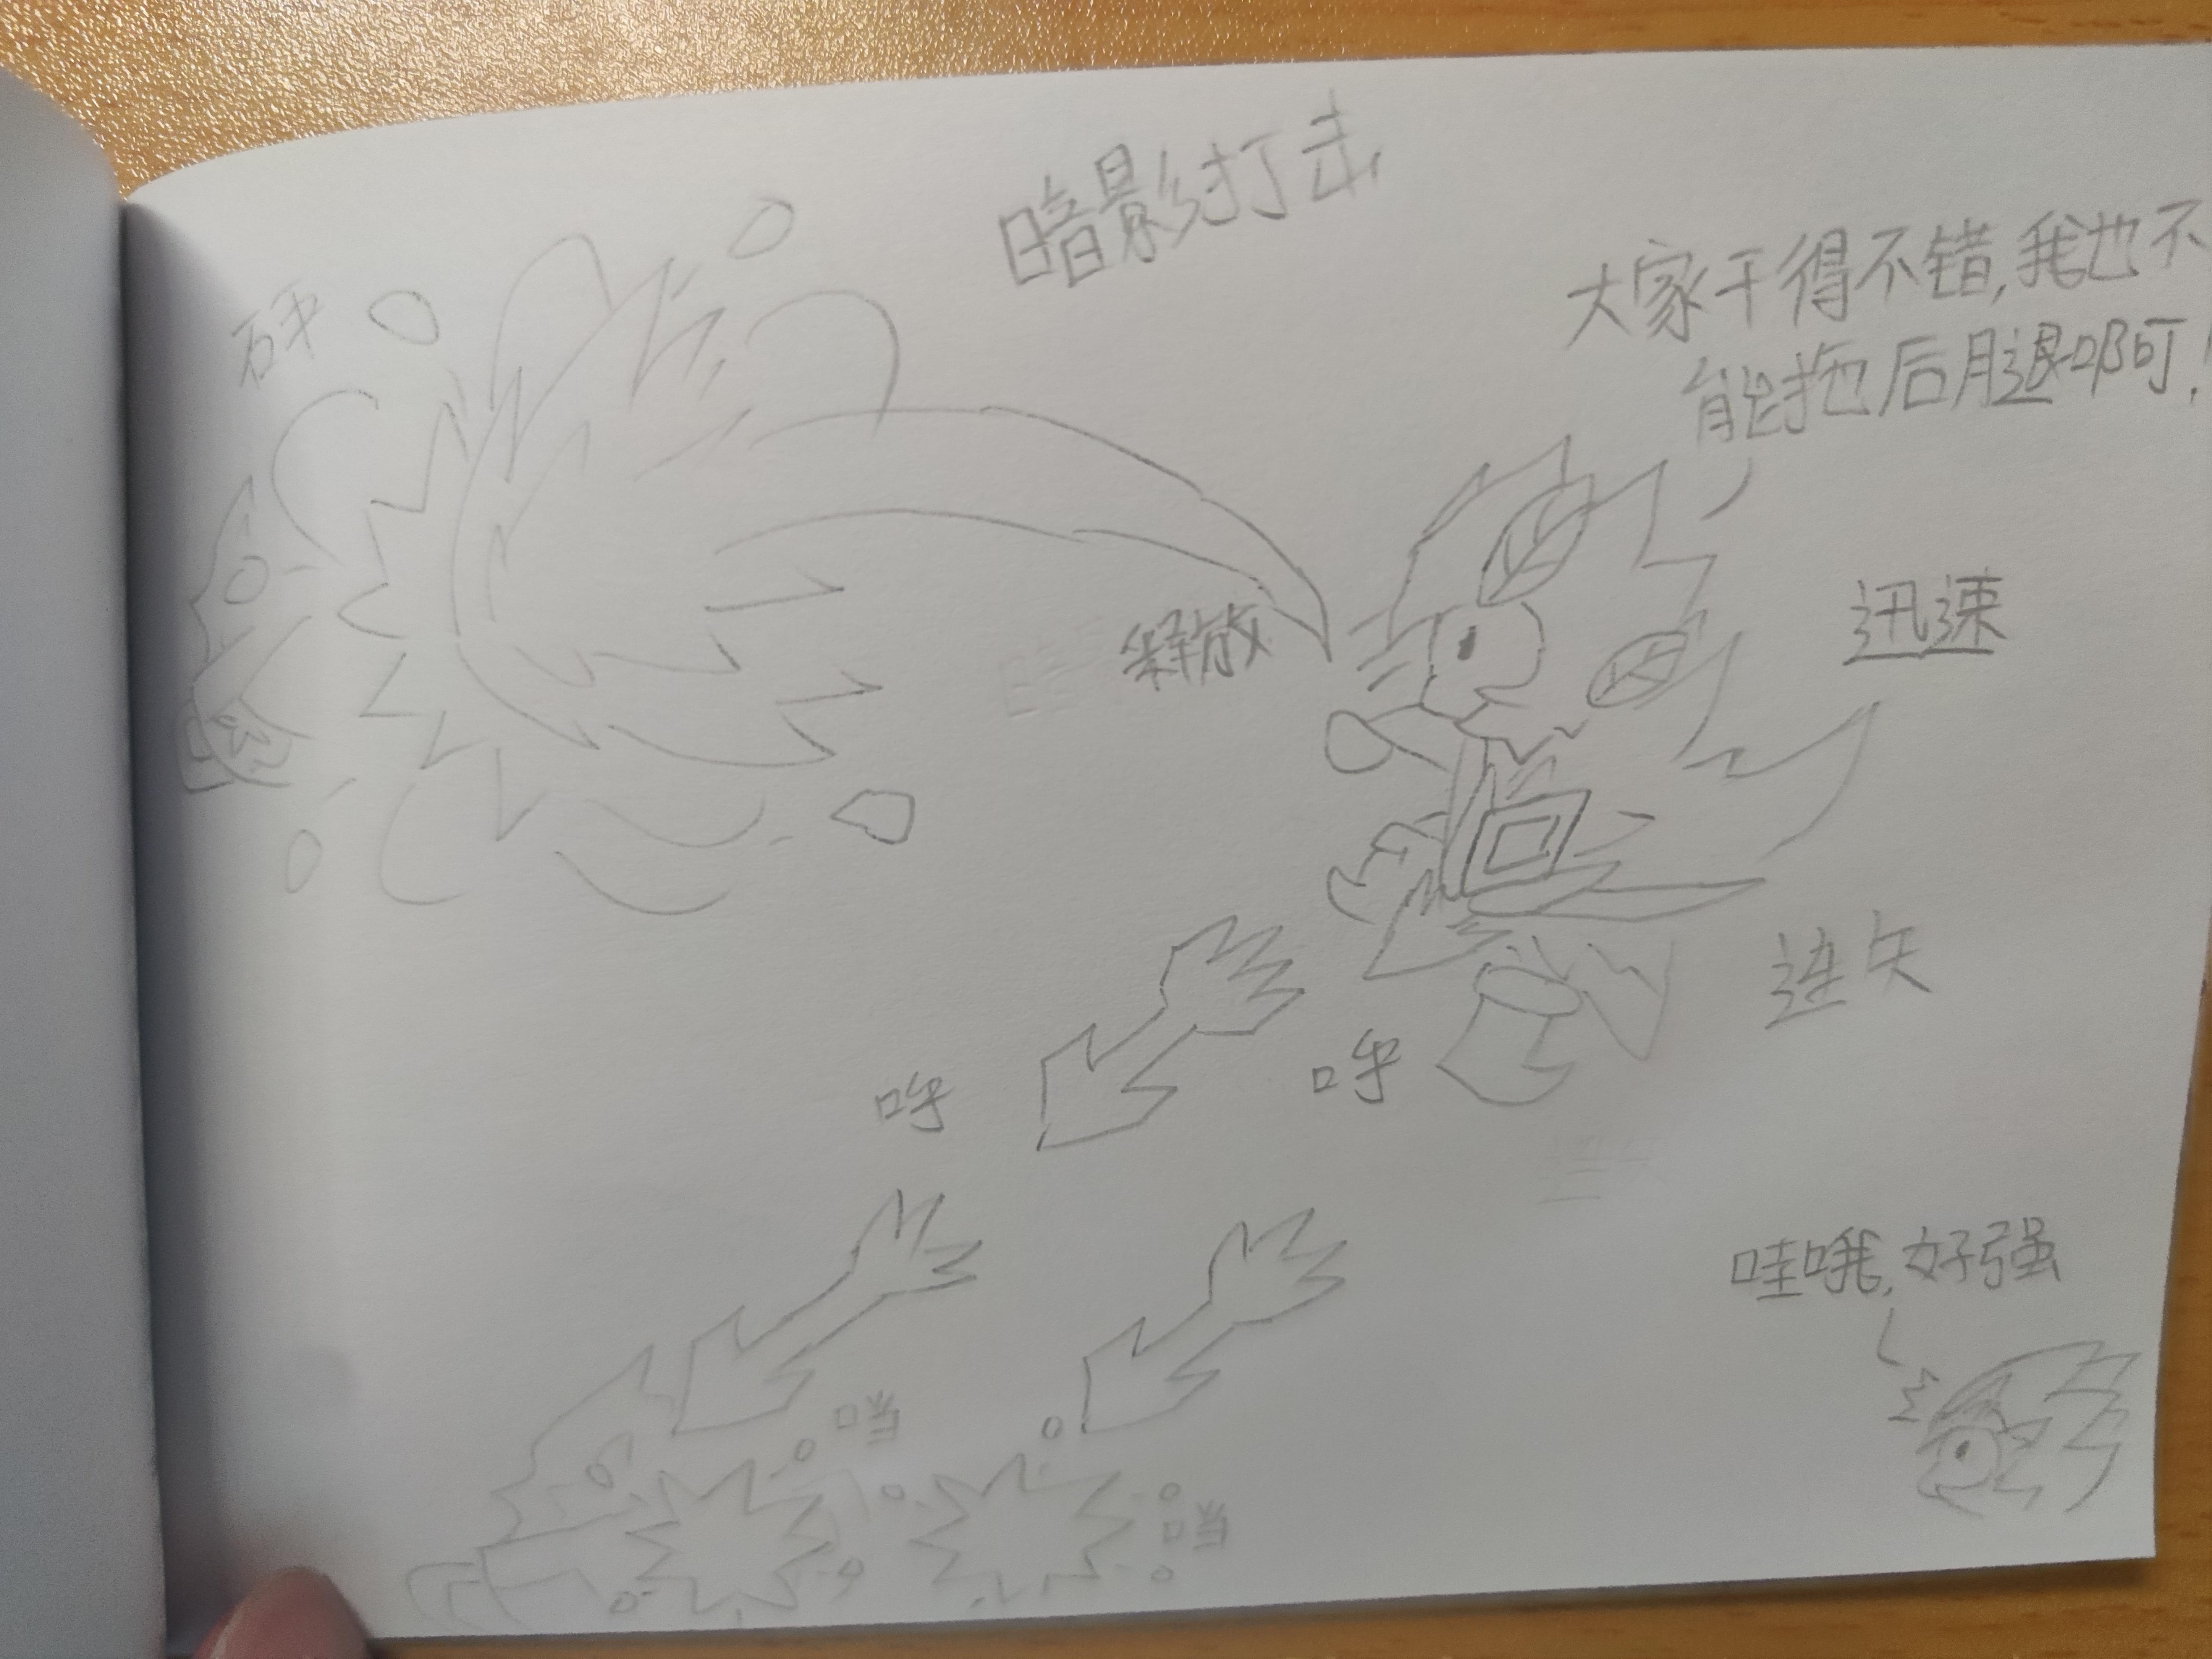 暗影打击
大家干得不错,我也不
能拖后腿啊,!
砰
释放
迅速
连矢
呼
呼
哇哦,好强
当
当